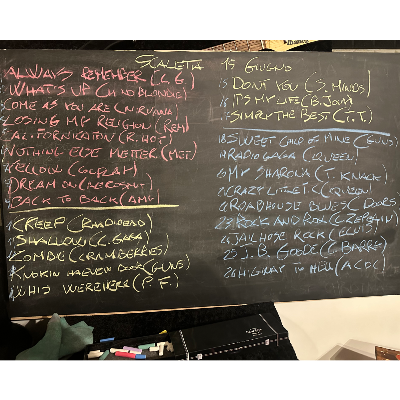 SCALETTA
ALWAYS REMEMBER (L.G)
WHAT'S UP (4 NO BLONDIE)
COME AS YOU ARE (NIRVANA)
LOSING MY RELIGION (REM)
CALIFORNICATION (R.HOT)
NOTHING ELSE METTER (MET)
YELLOW (COLPLAY)
DREAM ON (AEROSMIT)
BACK TO BACK (AMY)
CREEP (RAADIOEAD)
SHALLOW (L.GAGA)
ZOMBIE (CRAMBERRIES)
KNOKIN HAEVEN DOOR (GUNS)
WHIS WERE HERR (P.F.)
15 GIUGNO
15 DON'T YOU (S. MINDS)
16 IT'S MY LIFE (B. JOVI)
17 SIMPLY THE BEST (T.T.)
18 SWEET CHILD OF MINE (GUNS)
19 RADIO GAGA (QUEEN)
20 MY SHARONA (T. KNACK)
21 CRAZY LITTLE T. (QUEEN)
22 ROADHOUSE BLUES (DOORS
23 ROCK AND ROLL (ZEPPELIN)
24 JAILHOSE ROCK (ELVIS)
25 J.B. GOODE (C. BARRY)
26 HIGHWAY TO HELL (ACDC)